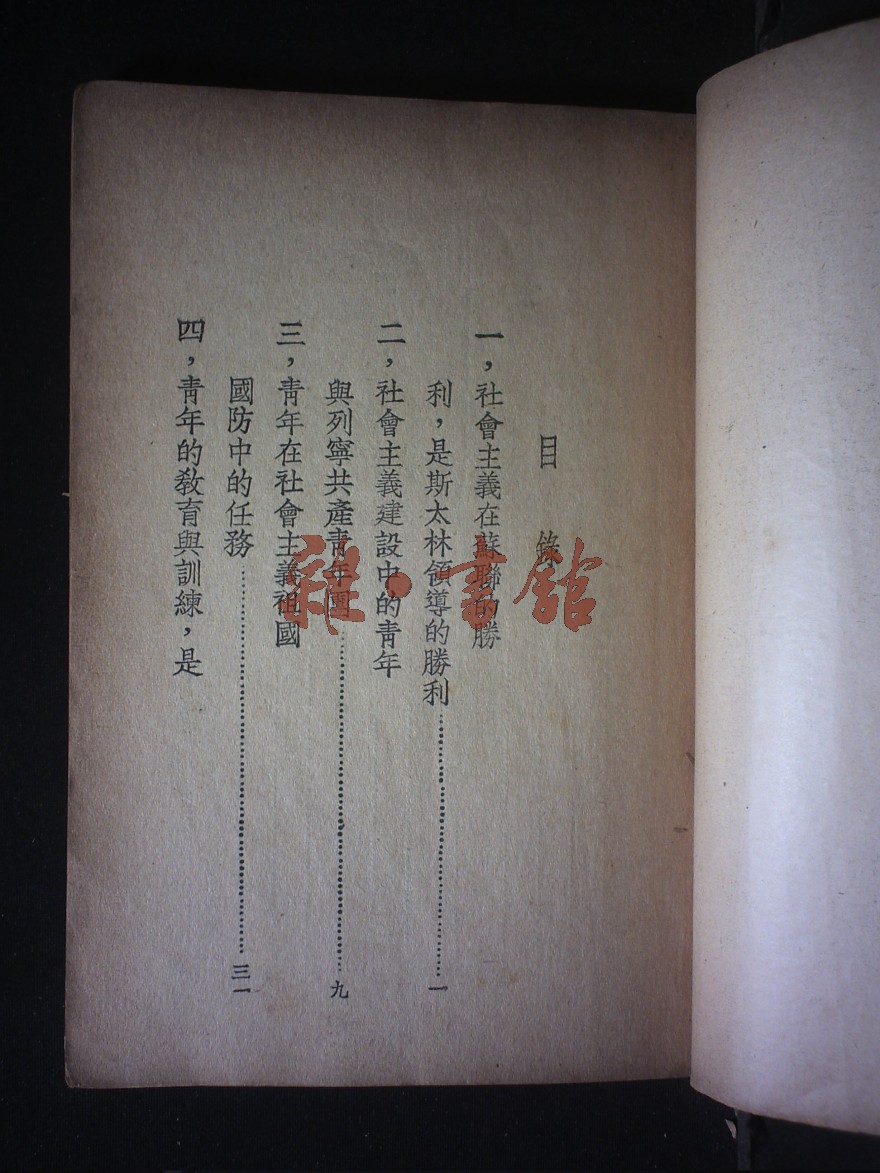 目 錄
一，社會主義在蘇聯的勝
利，是斯太林領導的勝利……一
二，社會主義建設中的青年
與列寧共產青年團……九
三，青年在社會主義祖國
國防中的任務……三一
四，青年的敎育與訓練，是
雜·書館